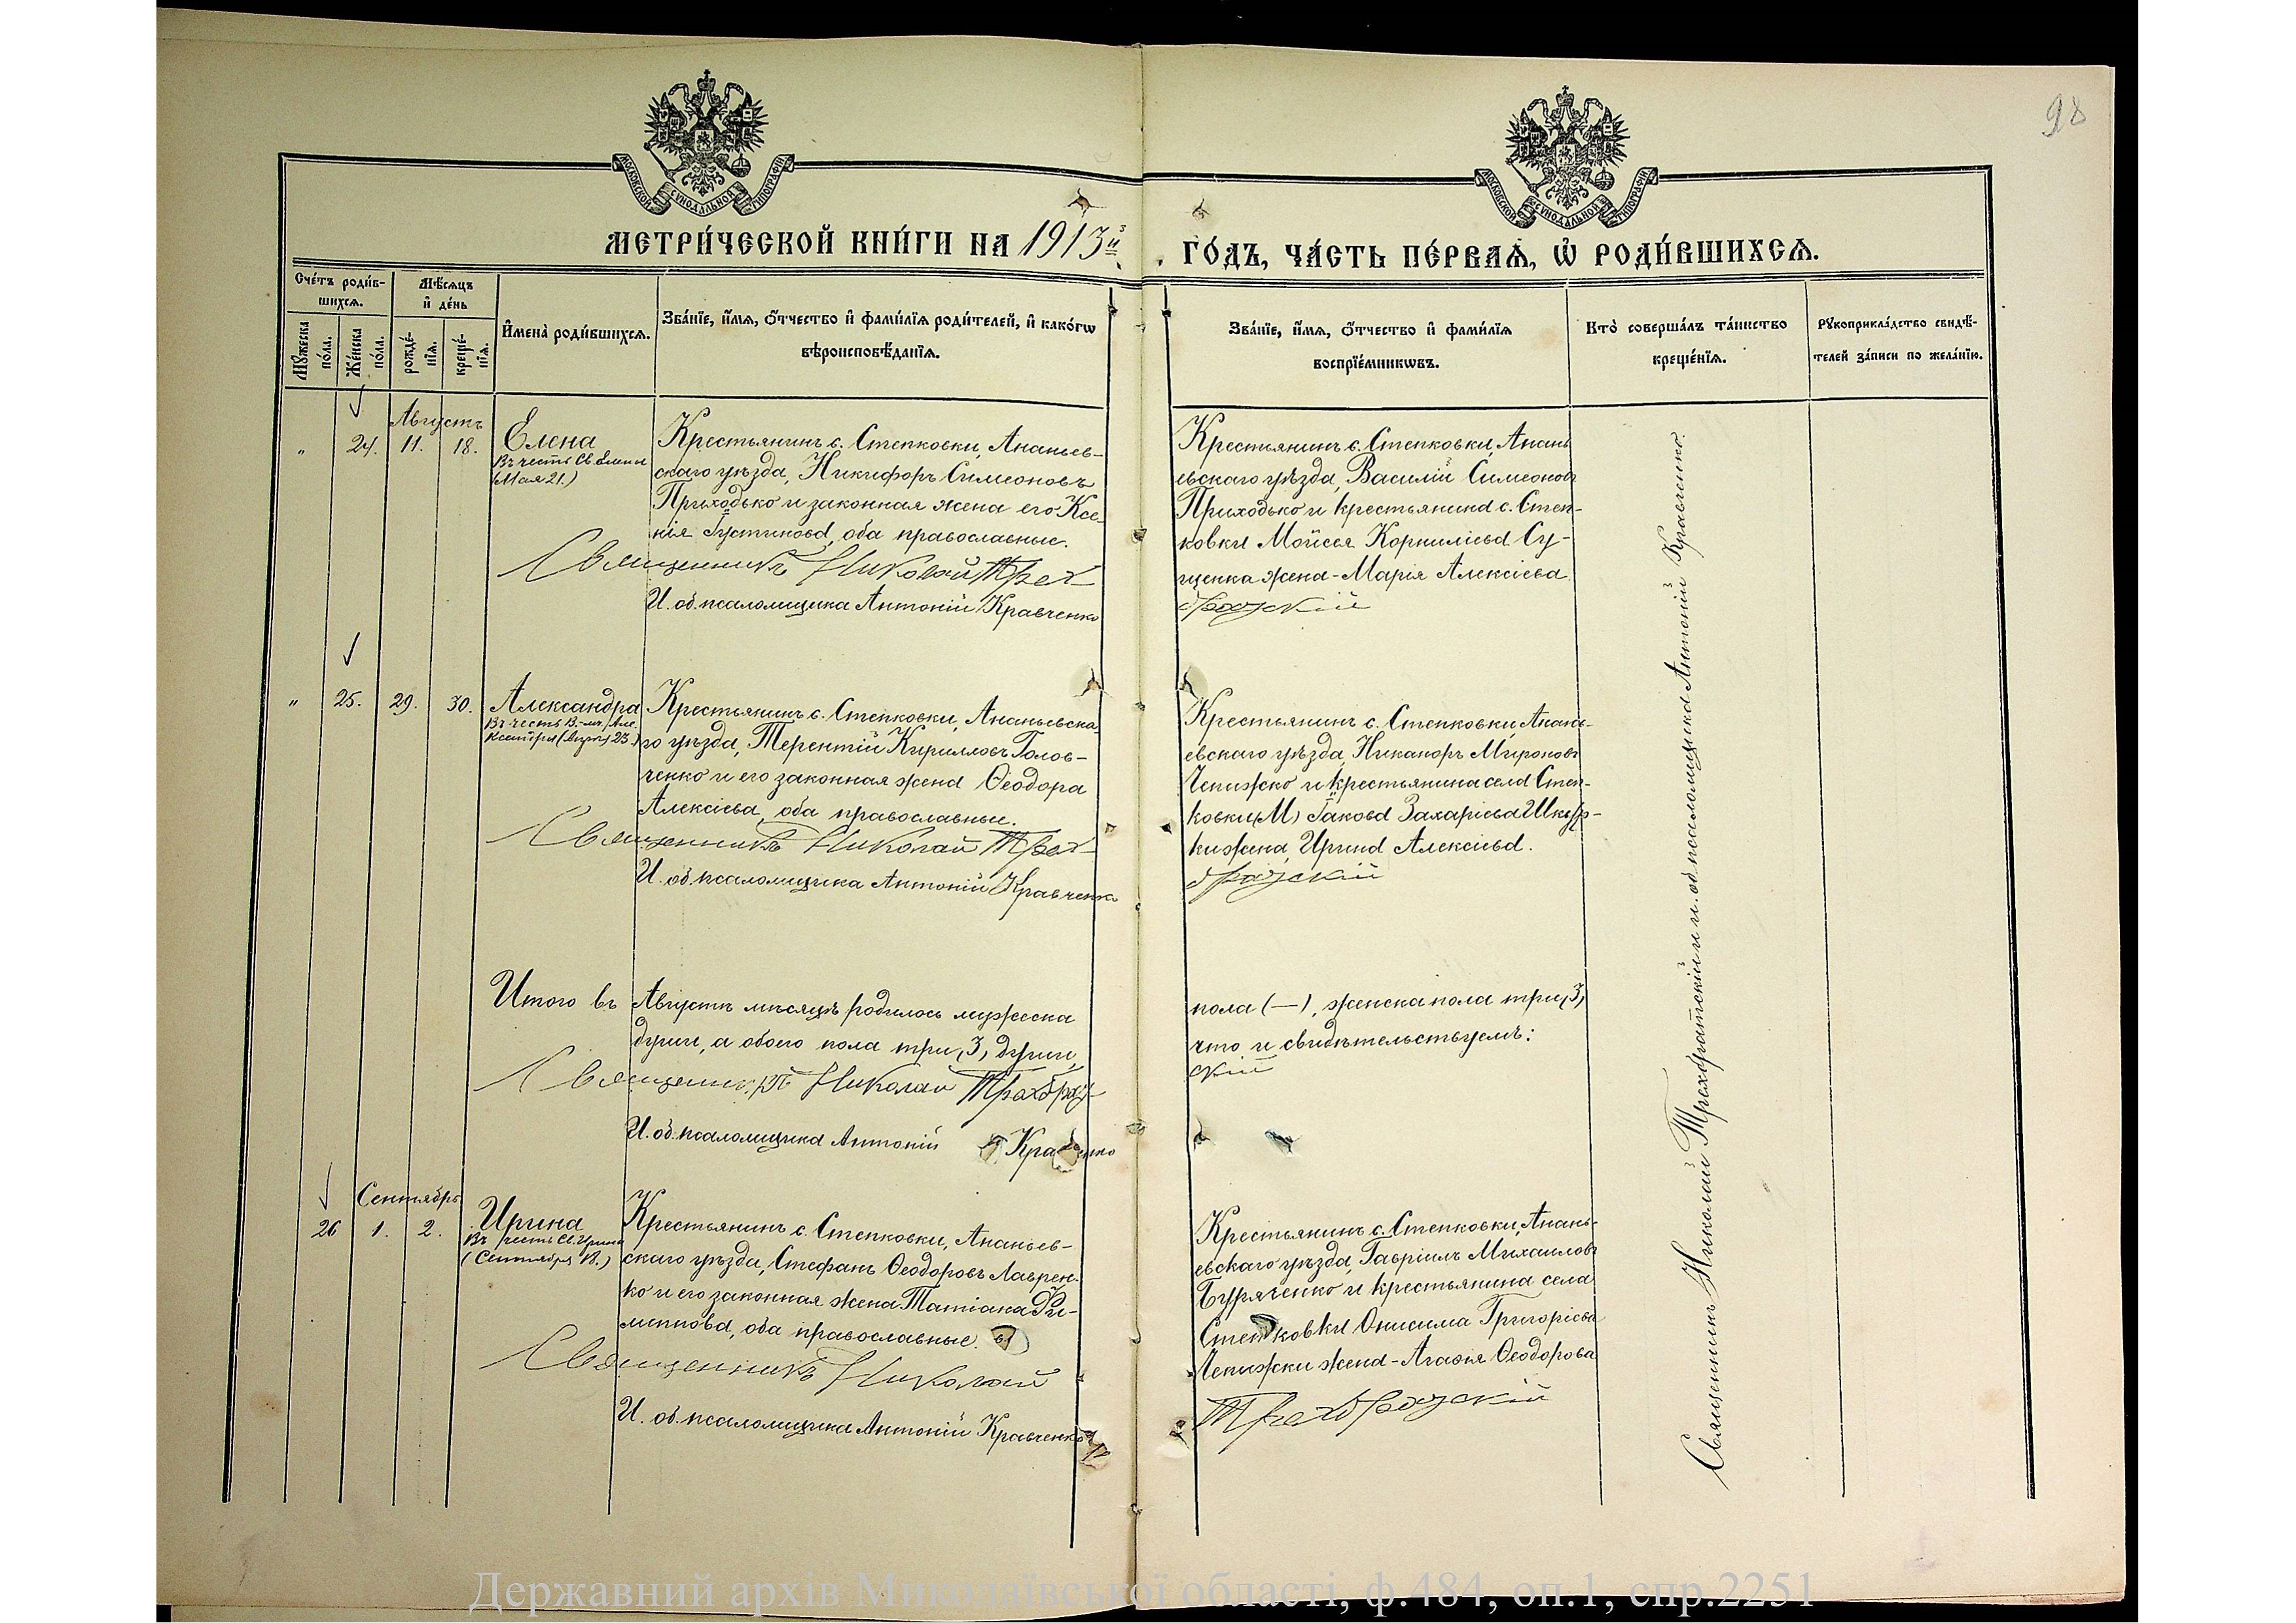 98
МОСКОВСКОЙ СУНОДАЛЬНОЙ ТИПОГРАФИИ
МОСКОВСКОЙ СУНОДАЛЬНОЙ ТИПОГРАФИИ
МЕТРИ́ЧЕСКОЙ КНИ́ГИ НА 1913й
ГО́ДЪ, ЧА́СТЬ ПЕ́РВАѦ, Ѡ҆ РОДИ́ВШИХСѦ.
Сче́тъ роди́в-
шихсѧ.
Мѣ́сѧцъ
и҆ де́нь
Мꙋ́жеска
по́ла.
Же́нска
по́ла.
рожде́-
нїѧ.
креще́-
нїѧ.
И҆мена̀ роди́вшихсѧ.
Зва́нїе, и҆́мѧ, ѻ҆́тчество и҆ фами́лїѧ роди́телей, и҆ како́гѡ
вѣроисповѣ́данїѧ.
Зва́нїе, и҆́мѧ, ѻ҆́тчество и҆ фами́лїѧ
воспрїе́мникѡвъ.
Кто̀ соверша́лъ та́инство
креще́нїѧ.
Рꙋкоприкла́дство свидѣ́-
телей за́писи по жела́нїю.
Августъ
" 24. 11. 18. Елена
Въ честь Св. Елены
(Мая 21.)
Крестьянинъ с. Степковки, Ананьев-
скаго уѣзда, Никифоръ Симеоновъ
Приходько и законная жена его Ксе-
нія Іустинова, оба православные.
Священникъ Николай Трех
И. об. псаломщика Антоній Кравченко
Крестьянинъ с. Степковки, Анань
евскаго уѣзда, Василій Симеоновъ
Приходько и крестьянина с. Степ-
ковки Моисея Корниліева Су-
щенка жена - Марія Алексіева
братскій
" 25. 29. 30. Александра
Въ честь В.-м. Але
ксандра (Март. 23.)
Крестьянинъ с. Степковки, Ананьевска-
го уѣзда, Терентій Кирилловъ Голов-
ченко и его законная жена Ѳеодора
Алексіева, оба православные.
Священникъ Николай Трех-
И. об. псаломщика Антоній Кравченко
Крестьянинъ с. Степковки, Анань-
евскаго уѣзда, Никаноръ Мироновъ
Чепижко и крестьянина села Степ-
ковки (М) Іакова Захаріева
жена, Ирина Алексіева.
братскій
Итого въ Августѣ мѣсяцѣ родилось мужеска
души, а обоего пола три, 3, души,
Священникъ Николай Трехбрат-
И. об. псаломщика Антоній Кравченко
пола (—), женска пола три, 3,
что и свидѣтельствуемъ:
скій
Сентябрь
26 1. 2. Ирина
Въ честь Св. Ирины
(Сентября 18.)
Крестьянинъ с. Степковки, Ананьев-
скаго уѣзда, Стефанъ Ѳеодоровъ Лаврен-
ко и его законная жена Татіана Фи-
липпова, оба православные.
Священникъ Николай
И. об. псаломщика Антоній Кравченко
Крестьянинъ с. Степковки, Анань-
евскаго уѣзда, Гавріилъ Михаиловъ
Буряченко и крестьянина села
Степковки Онисима Григоріева
Чепижки жена - Агаѳія Ѳеодорова
Трехбратскій
Священникъ Николай Трехбратскій и и. об. псаломщика Антоній Кравченко.
Державний архів Миколаївської області, ф.484, оп.1, спр.2251